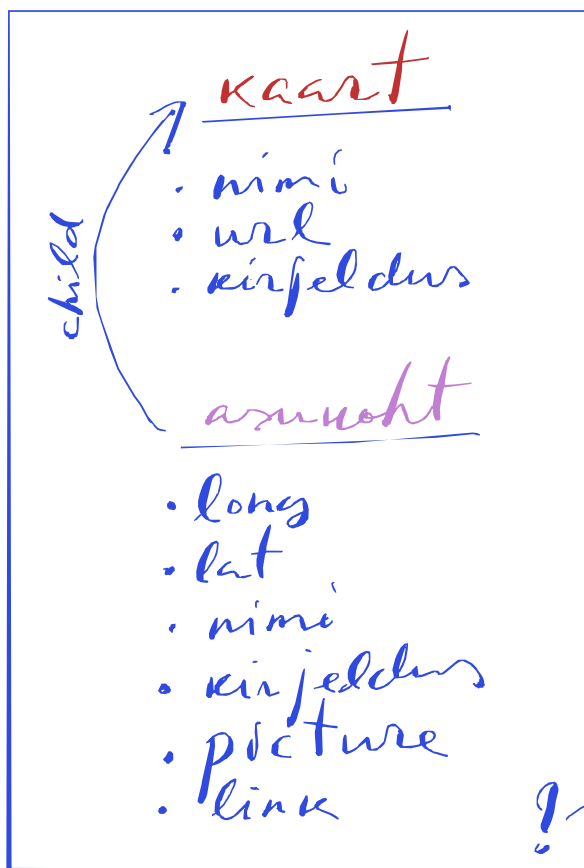 kaart
• nimi
• url
• kirjeldus
child
asukoht
• long
• lat
• nimi
• kirjeldus
• picture
• link
?